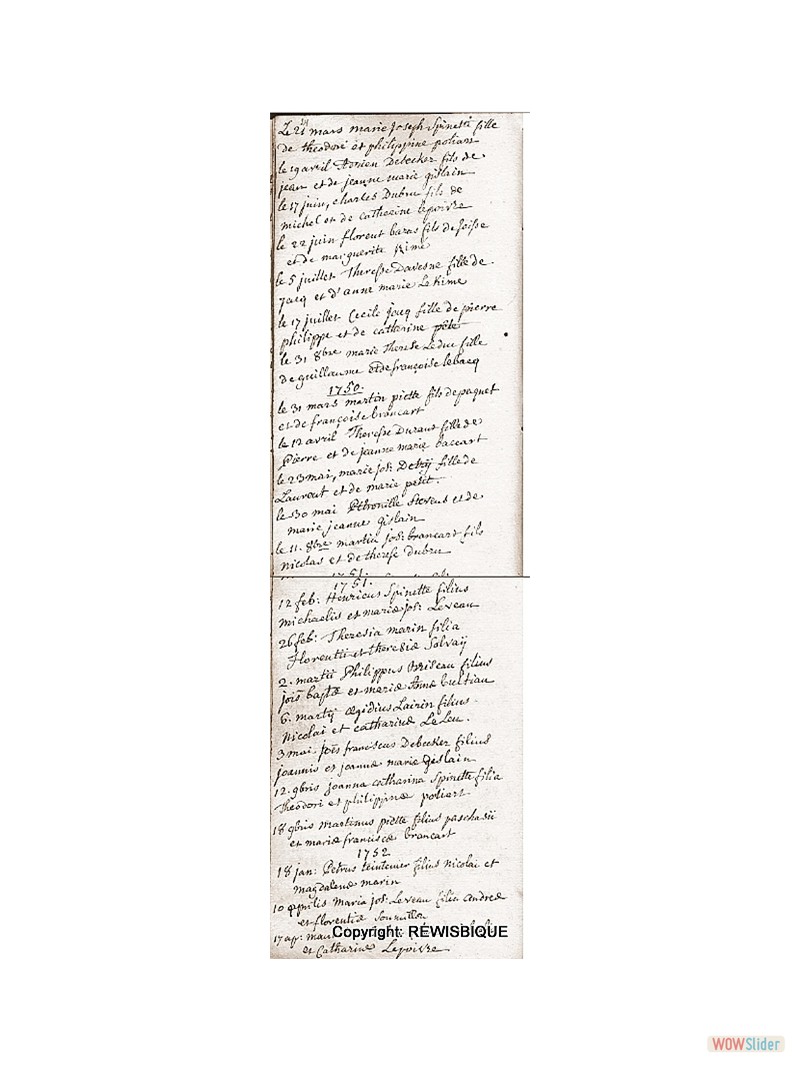 Le 21 mars marie Joseph Spinette fille
de theodore et philippine poliart
le 19 avril Adrien Debecker fils de
jean et de jeanne marie gislain
le 17 juin, charles Dubru fils de
michel et de catherine lepoivre
le 22 juin florent baras fils de
et de marguerite
le 5 juillet Therese Davesne fille de
jacq et d'anne marie Lekime
le 17 juillet Cecile jacq fille de pierre
philippe et de catherine
le 31 8bre marie Therese Leduc fille
de guillaume et de françoise lebacq
1750.
le 31 mars martin piette fils de paquet
et de françoise brancart
le 12 avril Therese Durant fille de
Pierre et de jeanne marie baccart
le 23 mai, marie jos: fille de
Laurent et de marie petit.
le 30 mai Petronille Stevens et de
marie jeanne gislain
le 11. 8bre martin jos: brancart fils
nicolas et de therese Dubru
1751.
12 feb: Henricus Spinette filius
michaelis et mariæ jos: Leveau
26 feb: Theresia marin filia
florentii et theresiæ Solvaÿ
2. martii Philippus Briseau filius
jois baptæ et mariæ Annæ
6. martii Ægidius Lairin filius
Nicolai et catharinæ Le Leu.
3 mai. jois franciscus Debecker filius
joannis et joannæ mariæ Gislain
12. 9bris joanna catharina Spinette filia
Theodori et philippinæ poliart
18 9bris Martinus piette filius paschasii
et mariæ franciscæ brancart
1752
18 jan: Petrus teintenier filius nicolai et
magdalenæ marin
10 aprilis Maria jos: Leveau filia andreæ
et florentiæ
17 ap:
et Catharinæ Lepoivre
Copyright: REWISBIQUE
WOWSlider